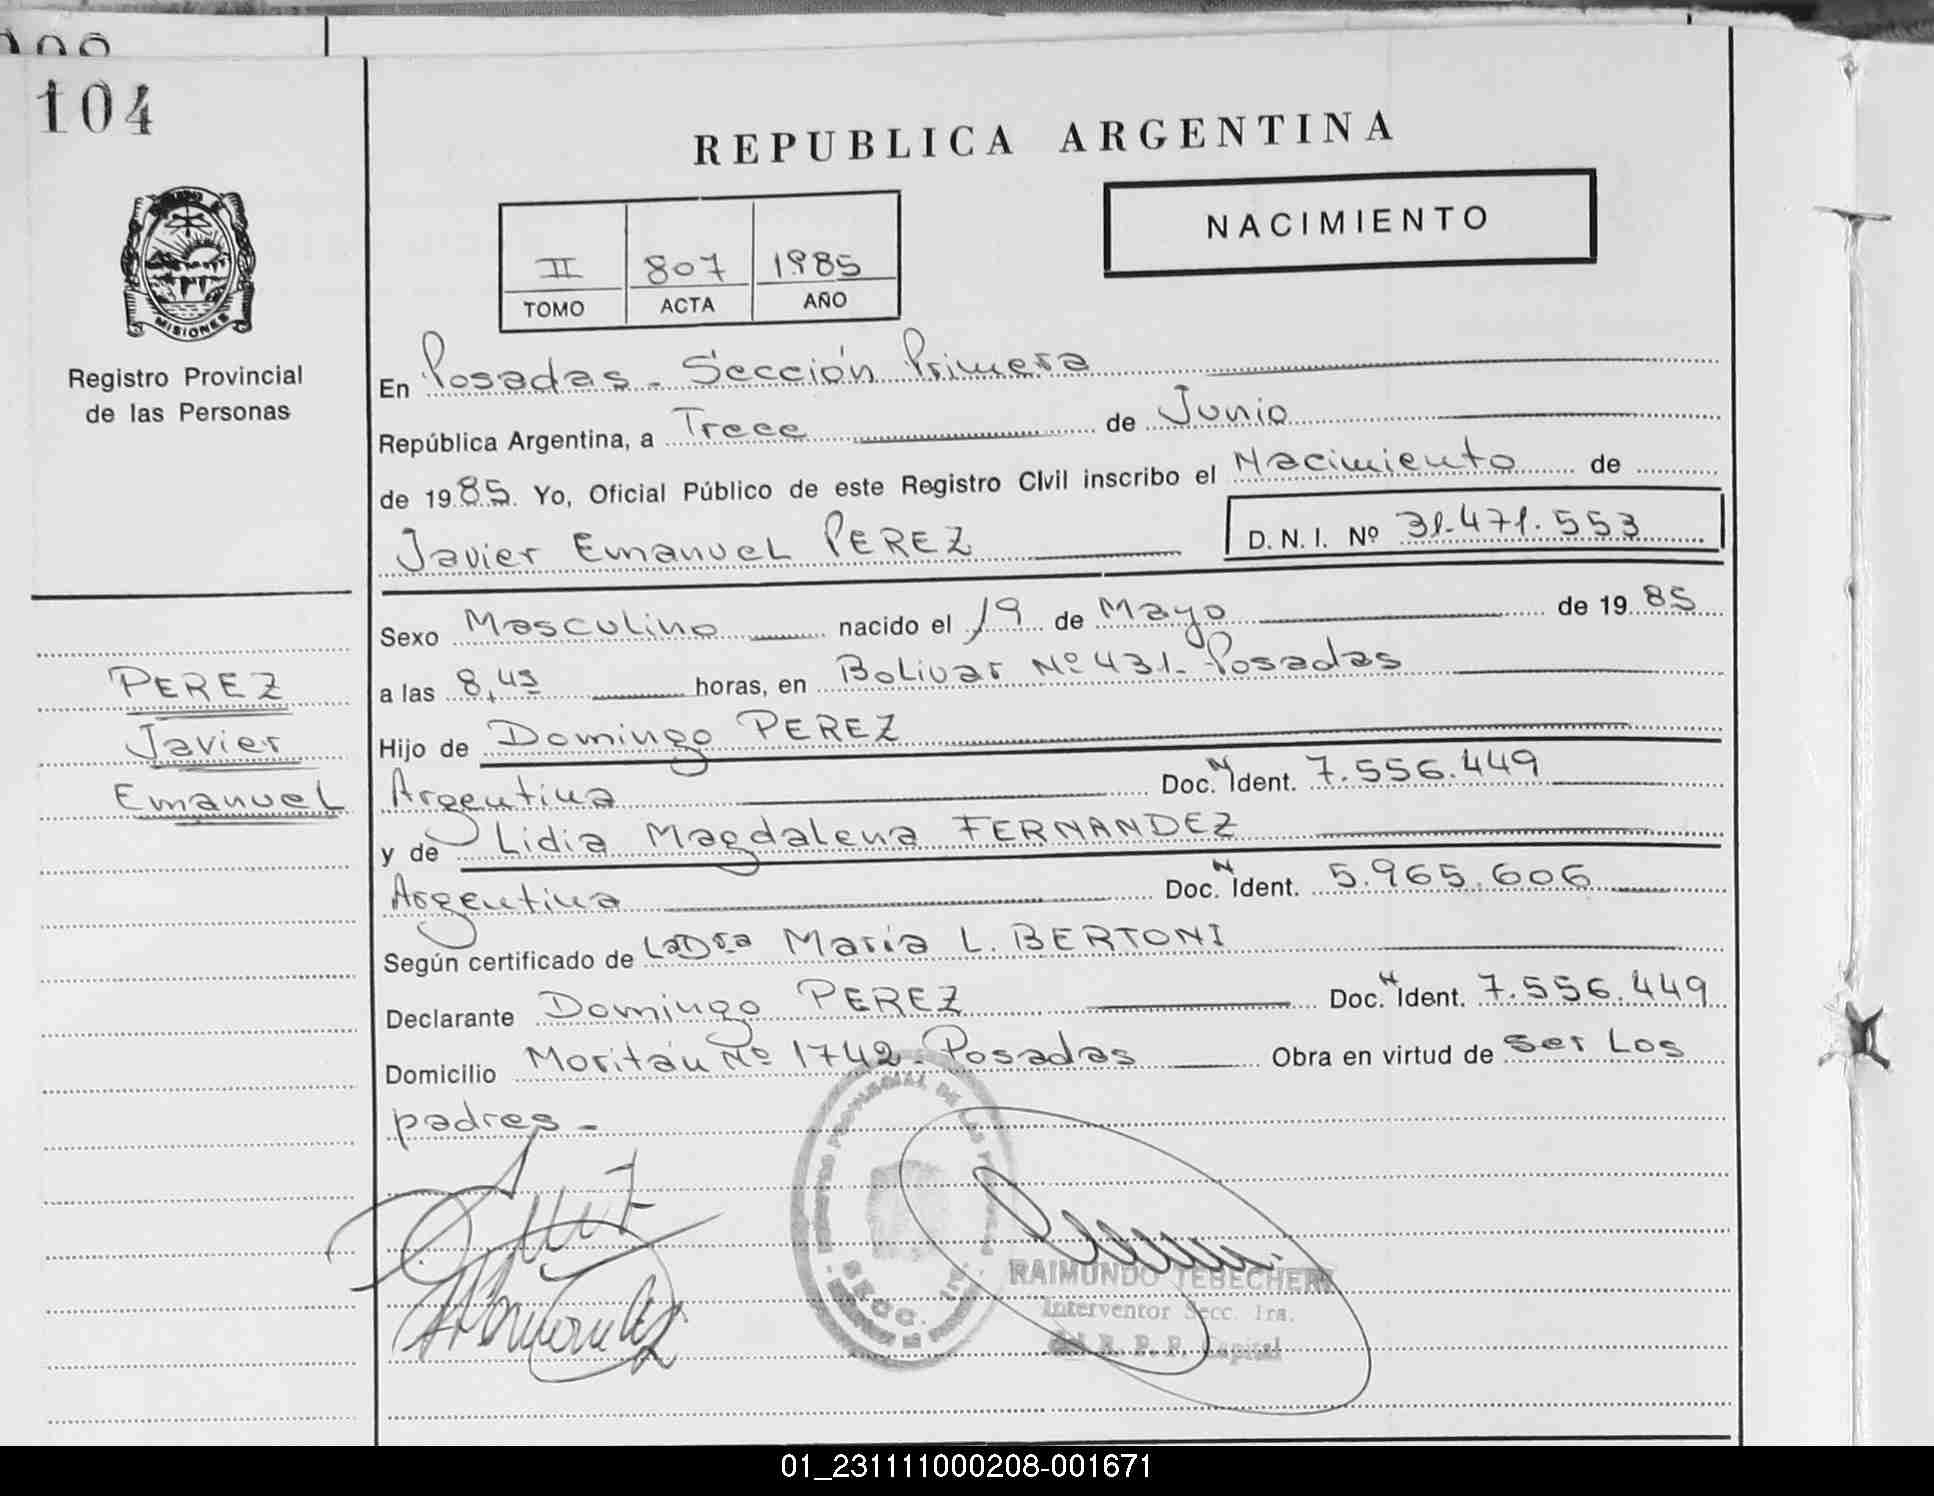 104
REPUBLICA ARGENTINA
NACIMIENTO
II 807 1985
TOMO ACTA AÑO
MISIONES
Registro Provincial
de las Personas
En Posadas - Sección Primera
República Argentina, a Trece de Junio
de 1985. Yo, Oficial Público de este Registro Civil inscribo el Nacimiento de
Javier Emanuel PEREZ D. N. I. Nº 31.471.553
Sexo Masculino nacido el 19 de Mayo de 1985
PEREZ
Javier
Emanuel
a las 8,45 horas, en Bolivar Nº 431- Posadas
Hijo de Domingo PEREZ
Argentina Doc. N Ident. 7.556.449
y de Lidia Magdalena FERNANDEZ
Argentina Doc. N Ident. 5.965.606
Según certificado de La Dra María L. BERTONI
Declarante Domingo PEREZ Doc. N Ident. 7.556.449
Domicilio Moritán Nº 1742- Posadas Obra en virtud de ser Los
padres -
REGISTRO PROVINCIAL DE LAS PERSONAS
SECC. 1ra.
RAIMUNDO TEBECHERI
Interventor Secc. 1ra.
del R. P. P. Capital
01_231111000208-001671